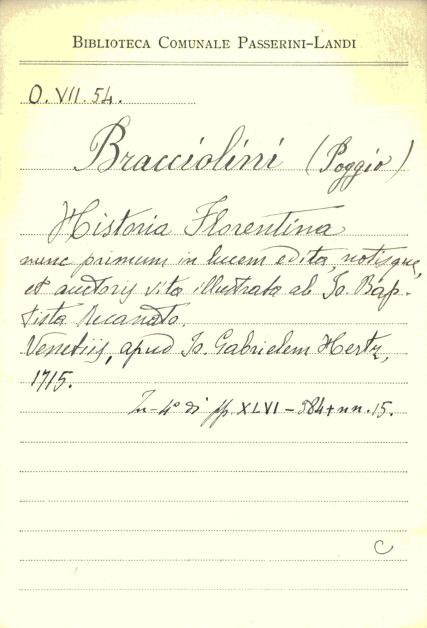 BIBLIOTECA COMUNALE PASSERINI-LANDI
O. VII. 54.
Bracciolini (Poggio)
Historia Florentina
nunc primum in lucem edita, notisque,
et auctoris vita illustrata ab Jo. Bap-
tista Recanato.
Venetiis, apud Jo. Gabrielem Hertz,
1715.
In-4° di pp. XLVI-384+nn. 15.
C